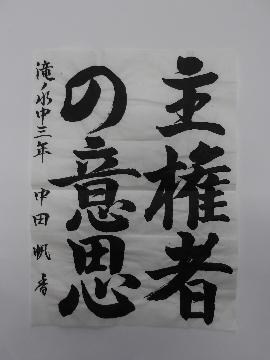 主権者
の意思
滝ノ水中三年 中田帆香